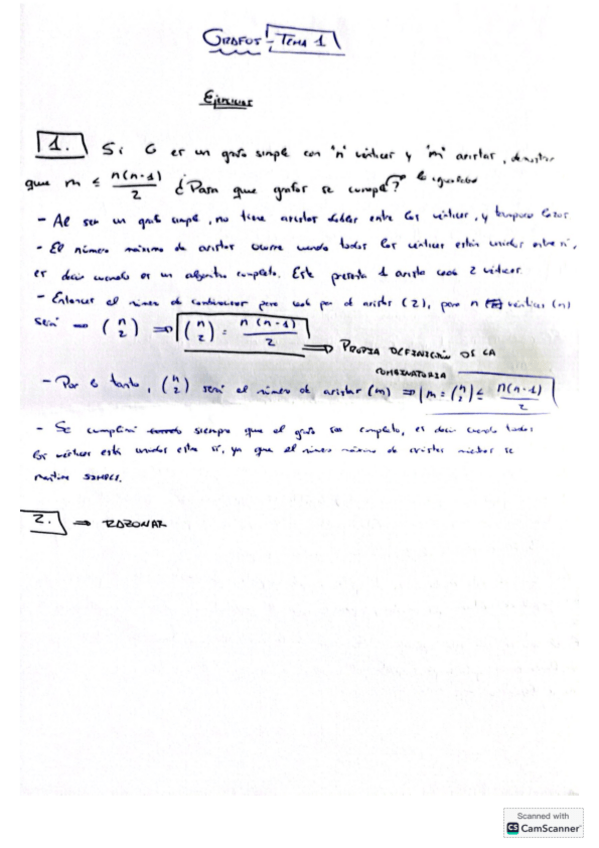 GRAFOS - TEMA 1
Ejercicios
1. Si G es un grafo simple con "n" vértices y "m" aristas, demostrar
que m ≤ n(n-1)/2 ¿Para que grafos se cumple la igualdad?
- Al ser un grafo simple, no tiene aristas dobles entre los vértices, y tampoco lazos
- El número máximo de aristas ocurre cuando todos los vértices están unidos entre sí,
es decir cuando es un completo. Este presenta 1 arista cada 2 vértices.
- Entonces el número de combinaciones para cada par de aristas (2), para n vértices (n)
será ⇒ (n 2) ⇒ (n 2) = n(n-1)/2
⇒ PROPIA DEFINICIÓN DE LA
COMBINATORIA
- Por lo tanto, (n 2) será el número de aristas (m) ⇒ m = (n 2) ≤ n(n-1)/2
- Se cumplirá siempre que el grafo sea completo, es decir cuando todos
los vértices están unidos entre sí, ya que el número máximo de aristas mientras se
mantiene SIMPLE.
2. ⇒ RAZONAR
Scanned with
CS CamScanner